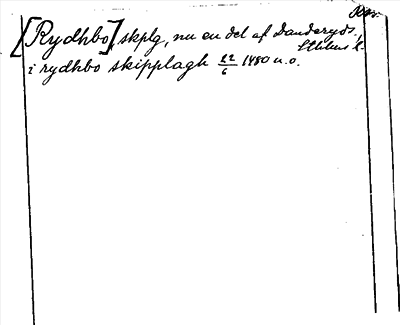 [Rydhbo], skplg, nu en del af Danderyds,
i rydhbo skipplagh 22/6 1480 u. o.